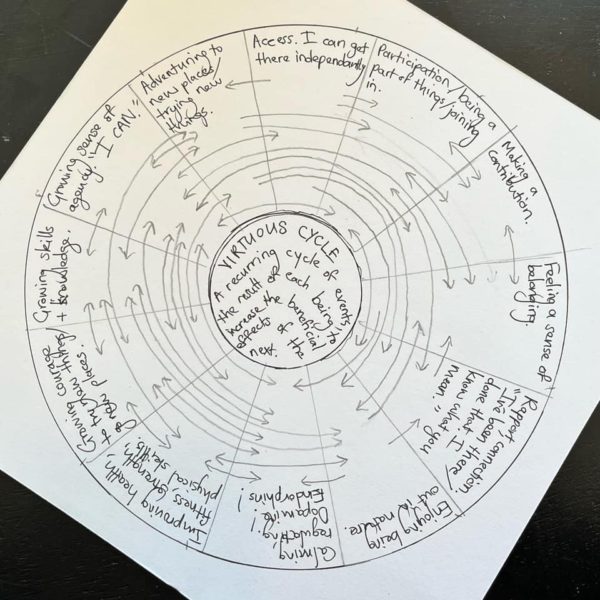 VIRTUOUS CYCLE
A recurring cycle of events
the result of each being to
increase the beneficial
effects of the
next.
Access. I can get
there independantly
Participation/being a
part of things/joining
in.
Making a
contribution.
Feeling a sense of
belonging.
Rapport connection.
"I've been there/
done that. I
know what you
mean."
Enjoying being
out in nature.
Calming,
regulating,
Dopamine!
Endorphins!
Improving health,
fitness, strength,
physical skills.
Growing courage
to try new things/
go new places.
Growing skills
+ knowledge.
Growing sense of
agency: "I CAN."
Adventuring to
new places/
trying new
things.